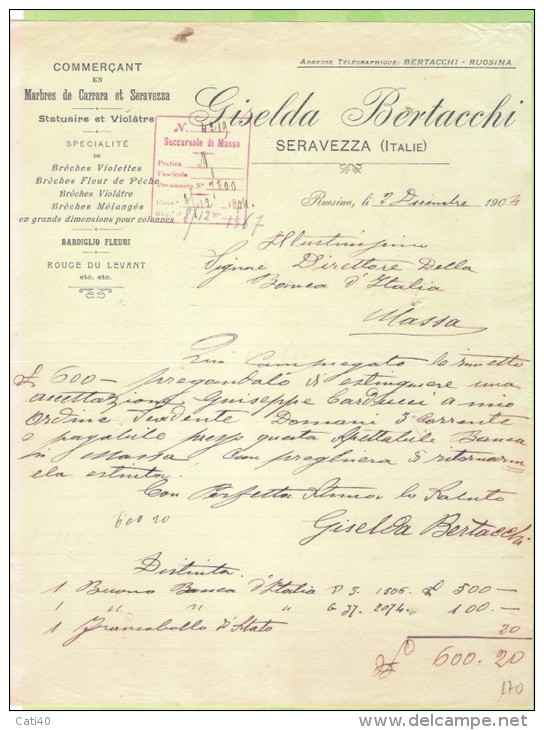 ADRESSE TÉLÉGRAPHIQUE: BERTACCHI - RUOSINA
COMMERÇANT
EN
Marbres de Carrara et Seravezza
Statuaire et Violâtre
SPECIALITÉ
DE
Brèches Violettes
Brèches Fleur de Pêche
Brèches Violâtre
Brèches Mélangés
en grands dimensions pour colonnes
BARDIGLIO FLEURI
ROUGE DU LEVANT
etc. etc.
Giselda Bertacchi
SERAVEZZA (ITALIE)
N.
Succursale di Massa
Pratica N
Fascicolo 1
Documento N° 1200
1367
Ruosina, le 2 Dicembre 1904
Illustrissimo
Signore Direttore Della
Banca d'Italia
Massa
Qui compiegato lo rimetto
£ 600 — pregandolo di estinguere una
accettazione Guiseppe Carducci a mio
ordine Scadente Domani 3 Corrente
e payabile presso questa Spettabile Banca
in Massa Con preghiera di ritornarm
ela estinta.
Con Perfetta Stima lo Saluto
600 20
Giselda Bertacchi
Distinta
1 Buono Banca d'Italia D 5. 1506. £ 500 —
1 " " " 6 37. 2074. 100. —
1 Francobollo di Stato 20
£ 600. 20
170
Cati40
www.delcampe.net